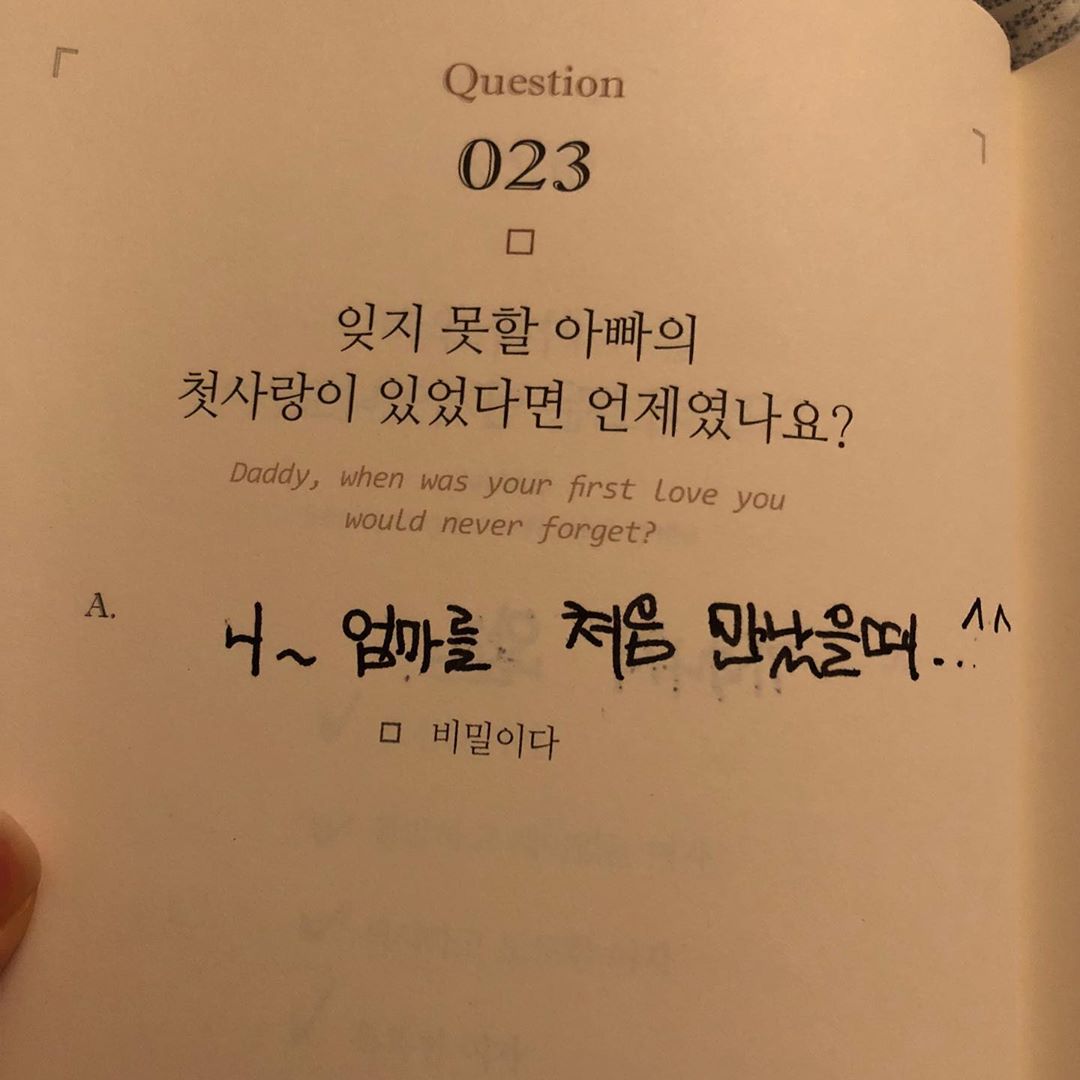 Question
023
잊지 못할 아빠의
첫사랑이 있었다면 언제였나요?
Daddy, when was your first love you
would never forget?
A. 니~ 엄마를 처음 만났을때... ^^
□ 비밀이다